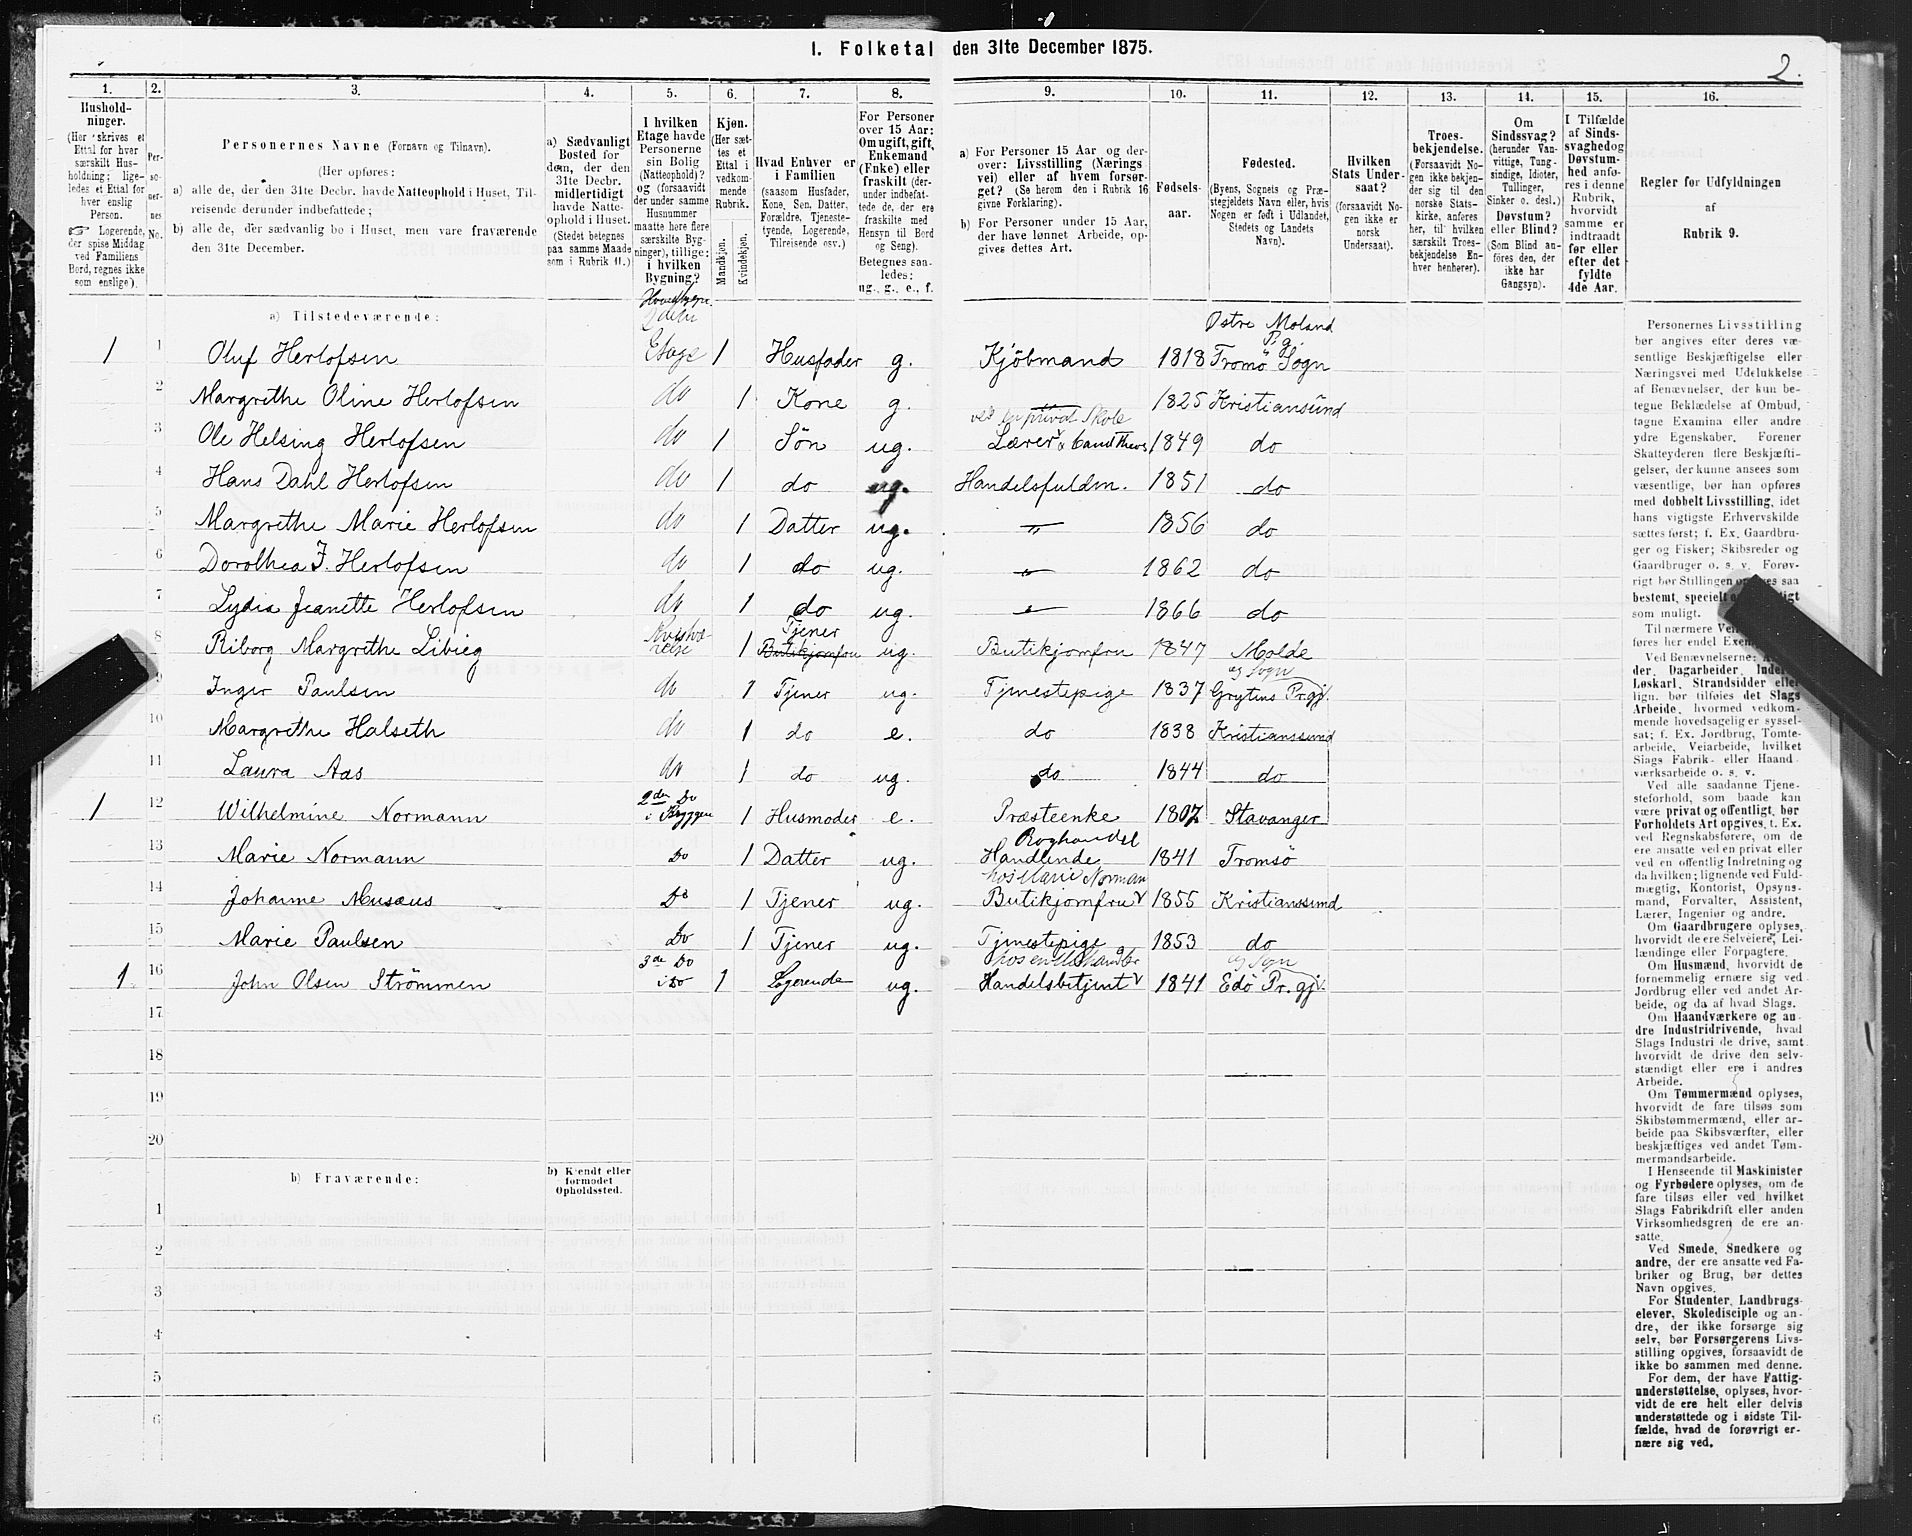 I. Folketal den 31te December 1875.
2.
1. 2. 3. 4. 5. 6. 7. 8. 9. 10. 11. 12. 13. 14. 15. 16.
Hushold-
ninger.
(Her skrives et
Ettal for hver
særskilt Hus-
holdning; lige-
ledes et Ettal for
hver enslig
Person.
☞ Logerende,
der spise Middag
ved Familiens
Bord, regnes ikke
som enslige).
Per-
so-
ner-
nes
No.
Personernes Navne (Fornavn og Tilnavn).
(Her opføres:
a) alle de, der den 31te Decbr. havde Natteophold i Huset, Til-
reisende derunder indbefattede;
b) alle de, der sædvanlig bo i Huset, men vare fraværende
den 31te December.
a) Sædvanligt
Bosted for
dem, der den
31te Decbr.
midlertidigt
havde Natte-
ophold i Huset.
(Stedet betegnes
paa samme Maade
som i Rubrik 11.)
I hvilken
Etage havde
Personerne
sin Bolig
(Natteophold)?
og (forsaavidt
der under samme
Husnummer
maatte høre flere
særskilte Byg-
ninger), tillige:
i hvilken
Bygning?
Kjøn.
(Her sæt-
tes et
Ettal i
vedkom-
mende
Rubrik.
Mandkjøn.
Kvindekjøn.
Hvad Enhver er
i Familien
(saasom Husfader,
Kone, Søn, Datter,
Forældre, Tjeneste-
tyende, Logerende,
Tilreisende osv.)
For Personer
over 15 Aar:
Om ugift, gift,
Enkemand
(Enke) eller
fraskilt (der-
under indbefat-
tede de, der ere
fraskilte med
Hensyn til Bord
og Seng).
Betegnes saa-
ledes:
ug., g., e., f.
a) For Personer 15 Aar og der-
over: Livsstilling (Nærings
vei) eller af hvem forsør-
get? (Se herom den i Rubrik 16
givne Forklaring).
b) For Personer under 15 Aar,
der have lønnet Arbeide, op-
gives dettes Art.
Fødsels-
aar.
Fødested.
(Byens, Sognets og Præ-
stegjeldets Navn eller, hvis
Nogen er født i Udlandet,
Stedets og Landets
Navn).
Hvilken
Stats Under-
saat?
(forsaavidt No-
gen ikke er
norsk
Undersaat).
Troes-
bekjendelse.
(Forsaavidt No-
gen ikke bekjen-
der sig til den
norske Stats-
kirke, anføres
her, til hvilken
særskilt Troes-
bekjendelse En-
hver henhører).
Om
Sindssvag?
(herunder Van-
vittige, Tung-
sindige, Idioter,
Tullinger,
Sinker o. desl.)
Døvstum?
eller Blind?
(Som Blind an-
føres den, der
ikke har
Gangsyn).
I Tilfælde
af Sinds-
svaghed og
Døvstum-
hed anfø-
res i denne
Rubrik,
hvorvidt
samme er
indtraadt
før eller
efter det
fyldte
4de Aar.
Regler for Udfyldningen
af
Rubrik 9.
a) Tilstedeværende:
Østre Moland
P.g.
1 1 Oluf Herlofsen Etage 1 Husfader g. Kjöbmand 1818 Tromö Sogn
2 Margrethe Oline Herlofsen do 1 Kone g. 1825 Kristiansund
ved en privat Skole
3 Ole Helsing Herlofsen do 1 Søn ug. Lærer & Cand Theos 1849 do
4 Hans Dahl Herlofsen do 1 do ug. Handelsfuldm. 1851 do
5 Margrethe Marie Herlofsen do 1 Datter ug. 1856 do
6 Dorothea J. Herlofsen do 1 do ug. 1862 do
7 Lydia Jeanette Herlofsen do 1 do ug. 1866 do
Tjener
8 Riborg Margrethe Libieg 1 Butikjomfru ug. Butikjomfru 1847 Molde
og Sogn
9 Inger Paulsen do 1 Tjener ug. Tjenestepige 1837 Grytens Pr.gj.
10 Margrethe Halseth do 1 do e. do 1838 Kristianssund
11 Laura Aas do 1 do ug. do 1844 do
2den Do
1 12 Wilhelmine Normann i Bryggen 1 Husmoder e. Præsteenke 1807 Stavanger
Boghandel
13 Marie Normann Do 1 Datter ug. Handlende 1841 Tromsö
hos Marie Norman
14 Johanne Musæus Do 1 Tjener ug. Butikjomfru 1855 Kristianssund
15 Marie Paulsen Do 1 Tjener ug. Tjenestepige 1853 do
3de Do hos en og Sogn
1 16 John Olsen Strömmen i Do 1 Logerende ug. Handelsbetjent 1841 Edö Pr.gj.
17
18
19
20
b) Fraværende:
b) Kjendt eller
formodet
Opholdssted.
1
2
3
4
5
6
Personernes Livsstilling
bør angives efter deres væ-
sentlige Beskjæftigelse eller
Næringsvei med Udelukkelse
af Benævnelser, der kun be-
tegne Beklædelse af Ombud,
tagne Examina eller andre
ydre Egenskaber. Forener
Skatteyderen flere Beskjæfti-
gelser, der kunne ansees som
væsentlige, bør han opføres
med dobbelt Livsstilling, idet
hans vigtigste Erhvervskilde
sættes først; f. Ex. Gaardbru-
ger og Fisker; Skibsreder og
Gaardbruger o. s. v. Forøv-
rigt bør Stillingen opgives saa
bestemt, specielt
som muligt.
Til nærmere
føres her endel
Ved Benævnelserne:
der, Dagarbeider,
Løskarl, Strandsidder eller
lign. bør tilføies det Slags
Arbeide, hvormed vedkom-
mende hovedsagelig er syssel-
sat; f. Ex. Jordbrug, Tomte-
arbeide, Veiarbeide, hvilket
Slags Fabrik- eller Haand
værksarbeide o. s. v.
Ved alle saadanne Tjene-
steforhold, som baade kan
være privat og offentligt, bør
Forholdets Art opgives, t. Ex.
ved Regnskabsførere, om de
ere ansatte ved en privat eller
ved en offentlig Indretning og
da hvilken; lignende ved Fuld-
mægtig, Kontorist, Opsyns-
mand, Forvalter, Assistent,
Lærer, Ingeniør og andre.
Om Gaardbrugere oplyses,
hvorvidt de ere Selveiere, Lei-
lændinge eller Forpagtere.
Om Husmænd, hvorvidt de
fornemmelig ernære sig ved
Jordbrug eller ved andet Ar-
beide, og da af hvad Slags.
Om Haandværkere og an-
dre Industridrivende, hvad
Slags Industri de drive, samt
hvorvidt de drive den selv-
stændigt eller ere i andres
Arbeide.
Om Tømmermænd oplyses,
hvorvidt de fare tilsøs som
Skibstømmermænd, eller ar-
beide paa Skibsværfter, eller
beskjæftiges ved andet Tøm-
mermandsarbeide.
I Henseende til Maskinister
og Fyrbødere oplyses, om de
fare tilsøs eller ved hvilket
Slags Fabrikdrift eller anden
Virksomhedsgren de ere an-
satte.
Ved Smede, Snedkere og
andre, der ere ansatte ved Fa-
briker og Brug, bør dettes
Navn opgives.
For Studenter, Landbrugs-
elever, Skoledisciple og an-
dre, der ikke forsørge sig
selv, bør Forsørgerens Livs-
stilling opgives, forsaavidt de
ikke bo sammen med denne.
For dem, der have Fattig-
understøttelse, oplyses, hvor-
vidt de ere helt eller delvis
understøttede og i sidste Til-
fælde, hvad de forøvrigt er-
nære sig ved.